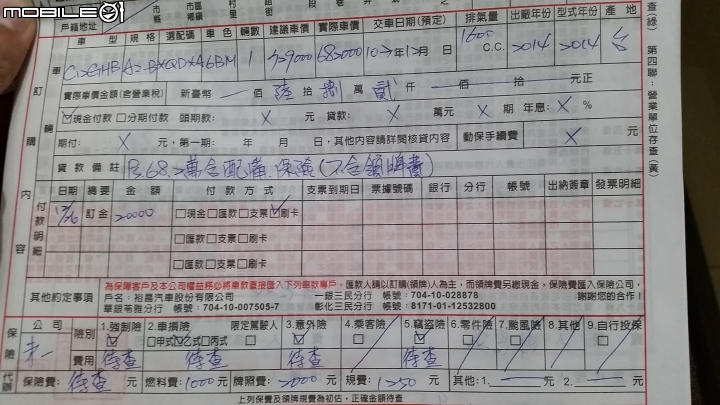 mobile01
戶籍地址 市縣 市區鄉鎮 村里 路街 段 巷 弄
車型 規格 選配碼 車色 輛數 建議車價 實際車價 交車日期(預定) 排氣量 出廠年份 型式年份 產地
1 682000 年 12月 日 1600 C.C. 2014 2014 台
實際車價金額(含營業稅) 新臺幣 佰 陸 拾 捌 萬 貳 仟 佰 拾 元正
現金付款 分期付款 頭期款: X 元 貸款: X 萬元 X 期 年息: X %
期付: X 元,第一期: 年 月 日,其他內容請詳閱核貸內容 動保手續費 X 元
貸款備註 P.68.2萬含配備.保險(不含領牌費)
日期 摘要 金額 付款方式 支票到期日 票據號碼 銀行 分行 帳號 出納簽章 發票明細
12/26 訂金 20000 現金 匯款 支票 刷卡
匯款 支票 刷卡
匯款 支票 刷卡
車輛
訂購內容
付款明細
其他約定事項
為保障客戶及本公司權益務必將車款直接匯入下列車款專戶。匯款人請以訂購(領牌)人為主,而領牌費另繳現金,保險費匯入保險公司,
戶名:裕昌汽車股份有限公司 一銀三民分行 帳號:704-10-028878 謝謝您的合作!
華銀苓雅分行 帳號:704-10-007505-7 彰化三民分行 帳號:8171-01-12532800
保險代辦
公司 險別 1.強制險 2.車損險 限定駕駛人 3.意外險 4.乘客險 5.竊盜險 6.零件險 7.颱風險 8.其他 9.自行投保
甲式 乙式 丙式
費用 待查 待查 待查 待查
保險費: 待查 元 燃料費: 1000 元 牌照費: 2000 元 規費: 1250 元 其他:1. 元 2. 元
上列保費及領牌規費為初估,正確金額待查
查綠) 第四聯:營業單位存查(黃)